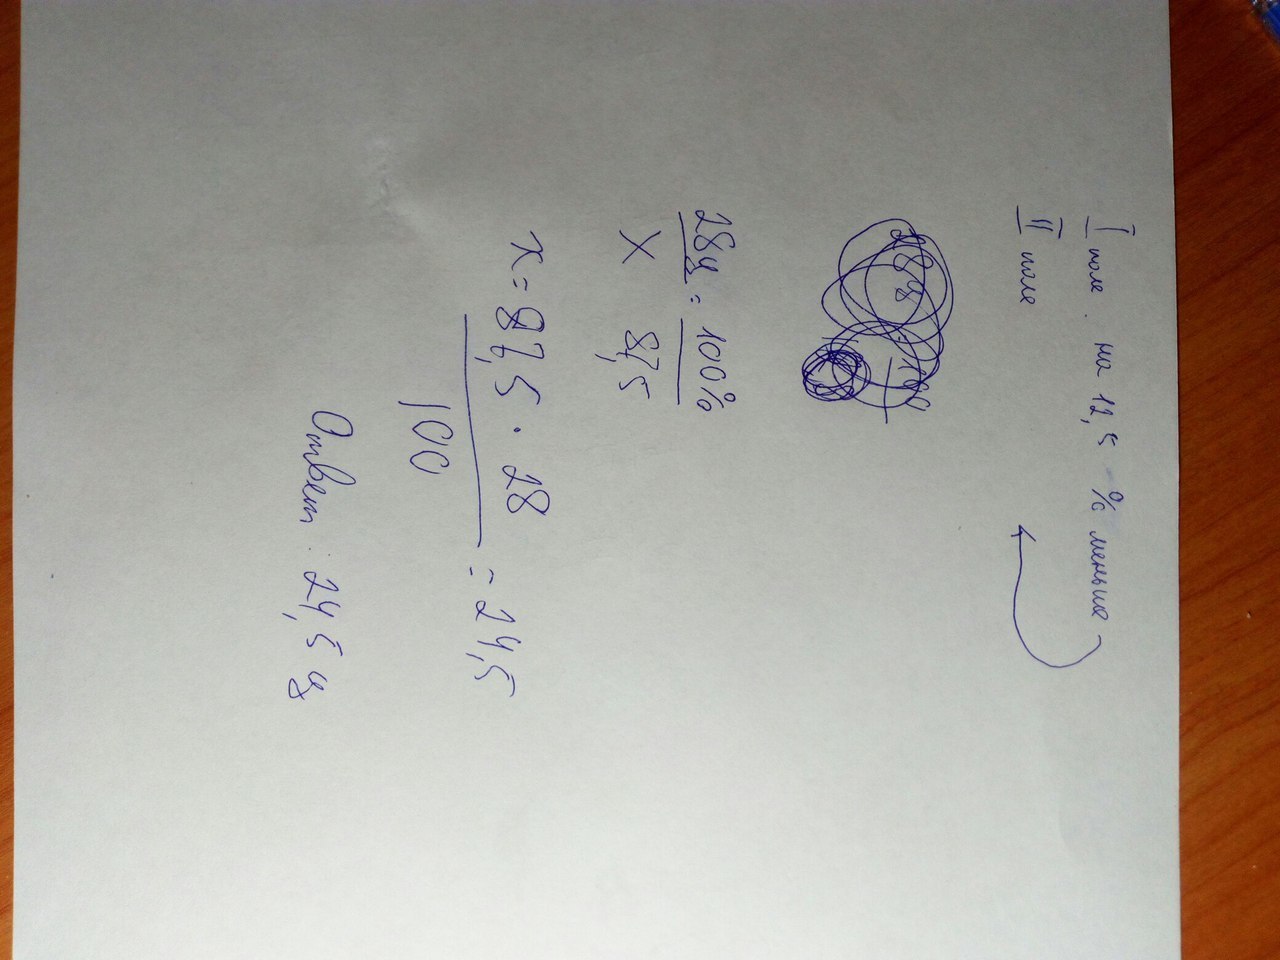 I поле. на 12,5 % меньше
II поле
28ц = 100%
X 87,5
x = 87,5 · 28
100
= 24,5
Ответ. 24,5 ц